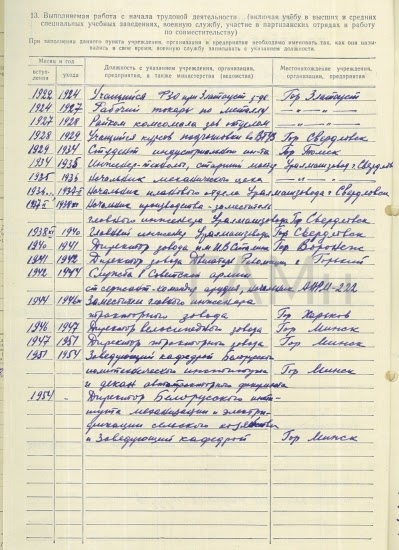 13. Выполняемая работа с начала трудовой деятельности (включая учёбу в высших и средних
специальных учебных заведениях, военную службу, участие в партизанских отрядах и работу
по совместительству)
При заполнении данного пункта учреждения, организации и предприятия необходимо именовать так, как они назы-
вались в своё время, военную службу записывать с указанием должности.
Месяц и год
вступ-
ления
ухода
Должность с указанием учреждения, организации,
предприятия, а также министерства (ведомства)
Местонахождение учреждения,
организации, предприятия
1922 1924 Учащийся ФЗО при Златоуст Гор Златоуст
1924 1927 Рабочий токарь по металлу
1927 1928 Райком комсомола зав отделом
1928 1929 Учащийся курсов подготовки в ВТУЗ Гор Свердловск
1929 1934 Студент индустриального ин-та Гор Томск
1934 1935 Инженер-технолог, старший Уралмашзавод г. Свердловск
1935 1936 Начальник механического цеха
1936 Начальник планового отдела Уралмашзавода г. Свердловск
Начальник производства - заместитель
главного инженера Уралмашзавода Гор Свердловск
1940 Главный инженер Уралмашзавода Гор Свердловск
1940 1941 Директор завода им И.В. Сталина Гор Воронеж
1941 1942 Директор завода Двигатель Революции г Горький
1942 1944 Служба в Советской армии
ст сержант-командир орудия,
1944 Заместитель главного инженера
тракторного завода Гор Харьков
1946 1947 Директор велосипедного завода Гор Минск
1947 1951 Директор тракторного завода Гор Минск
1951 1954 Заведующий кафедрой Белорусского
политехнического института
и декан автотракторного факультета Гор Минск
1954 – Директор Белорусского инсти-
тута механизации и электри-
фикации сельского хозяйства
и Заведующий кафедрой Гор Минск